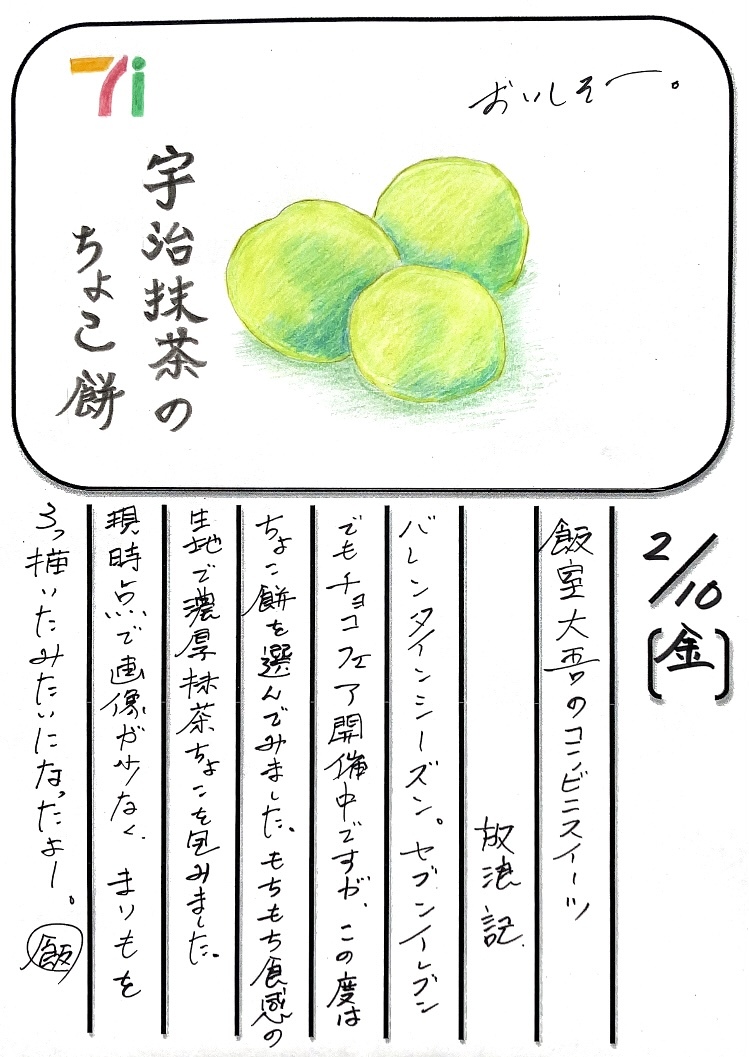 7i
おいしそー。
宇治抹茶の
ちょこ餅
2/10
[金]
飯室大吾のコンビニスイーツ
放浪記
バレンタインシーズン。セブンイレブン
でもチョコフェア開催中ですが、この度は
ちょこ餅を選んでみました。もちもち食感の
生地で濃厚抹茶ちょこを包みました。
現時点で画像が少なく、まりもを
3つ描いたみたいになったよー。
飯